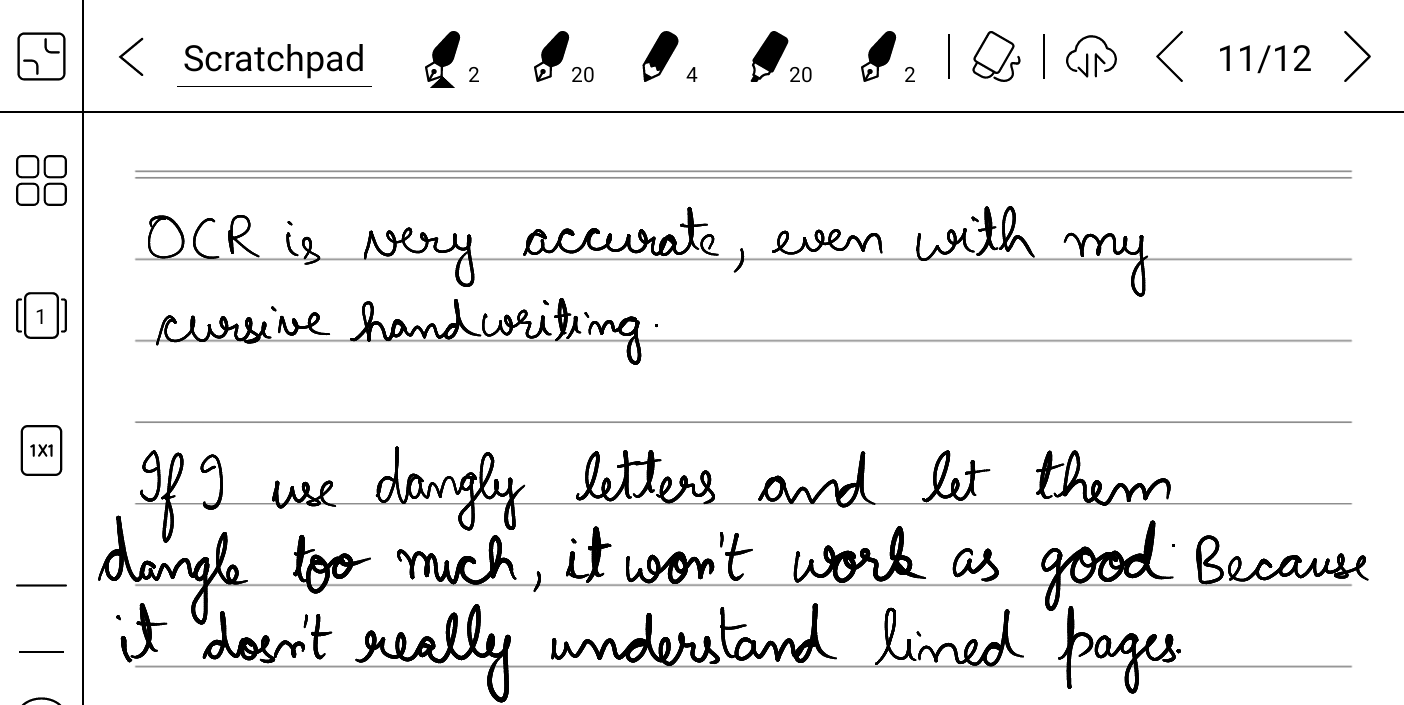 Scratchpad 2 20 4 20 2 11/12
OCR is very accurate, even with my
1
cursive handwriting.
1X1
If I use dangly letters and let them
dangle too much, it won't work as good. Because
it dosn't really understand lined pages.